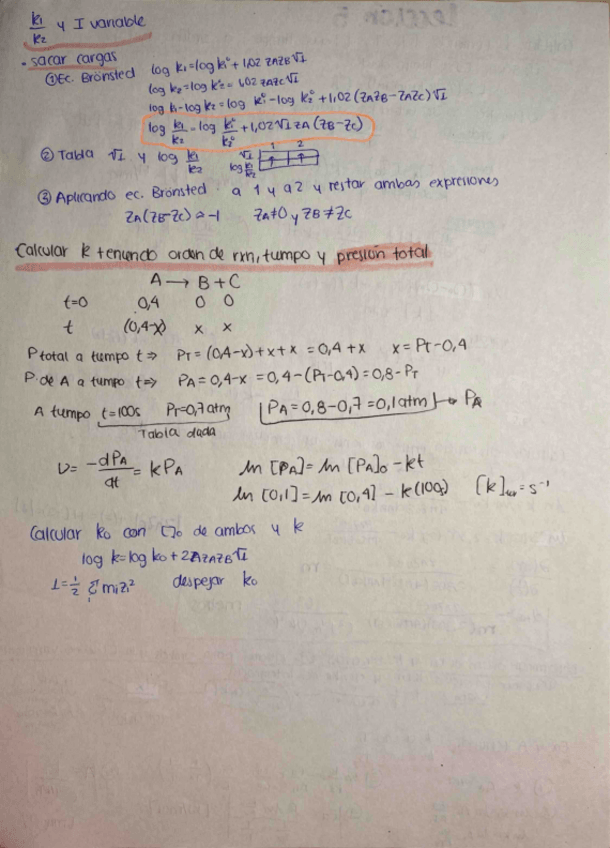 k₁/k₂ y I variable
• sacar cargas
① Ec. Brönsted log k₁ = log k₁° + 1,02 ZAZB √I
log k₂ = log k₂° = 1,02 ZAZC √I
log k₁ - log k₂ = log k₁° - log k₂° + 1,02 (ZAZB - ZAZC) √I
log k₁/k₂ = log k₁°/k₂° + 1,02 √I ZA (ZB - ZC)
② Tabla √I y log k₁/k₂ √I 1 2
log k₁/k₂
③ Aplicando ec. Bronsted a 1 y a 2 y restar ambas expresiones
ZA (ZB - ZC) = -1 ZA≠0 y ZB ≠ ZC
Calcular k teniendo orden de rxn, tiempo y presión total
A → B + C
t=0 0,4 0 0
t (0,4-x) x x
P total a tiempo t ⇒ PT = (0,4-x)+x+x = 0,4+x x = PT - 0,4
P de A a tiempo t ⇒ PA = 0,4-x = 0,4-(PT-0,4) = 0,8 - PT
A tiempo t=100s PT = 0,7 atm PA = 0,8-0,7 = 0,1 atm → PA
Tabla dada
v = -dPA/dt = k PA ln [PA] = ln [PA]₀ - kt
ln [0,1] = ln [0,4] - k(100) [k] = s⁻¹
Calcular k₀ con []₀ de ambos y k
log k = log k₀ + 2A ZAZB √I
I = ½ Σ mᵢzᵢ² despejar k₀
i